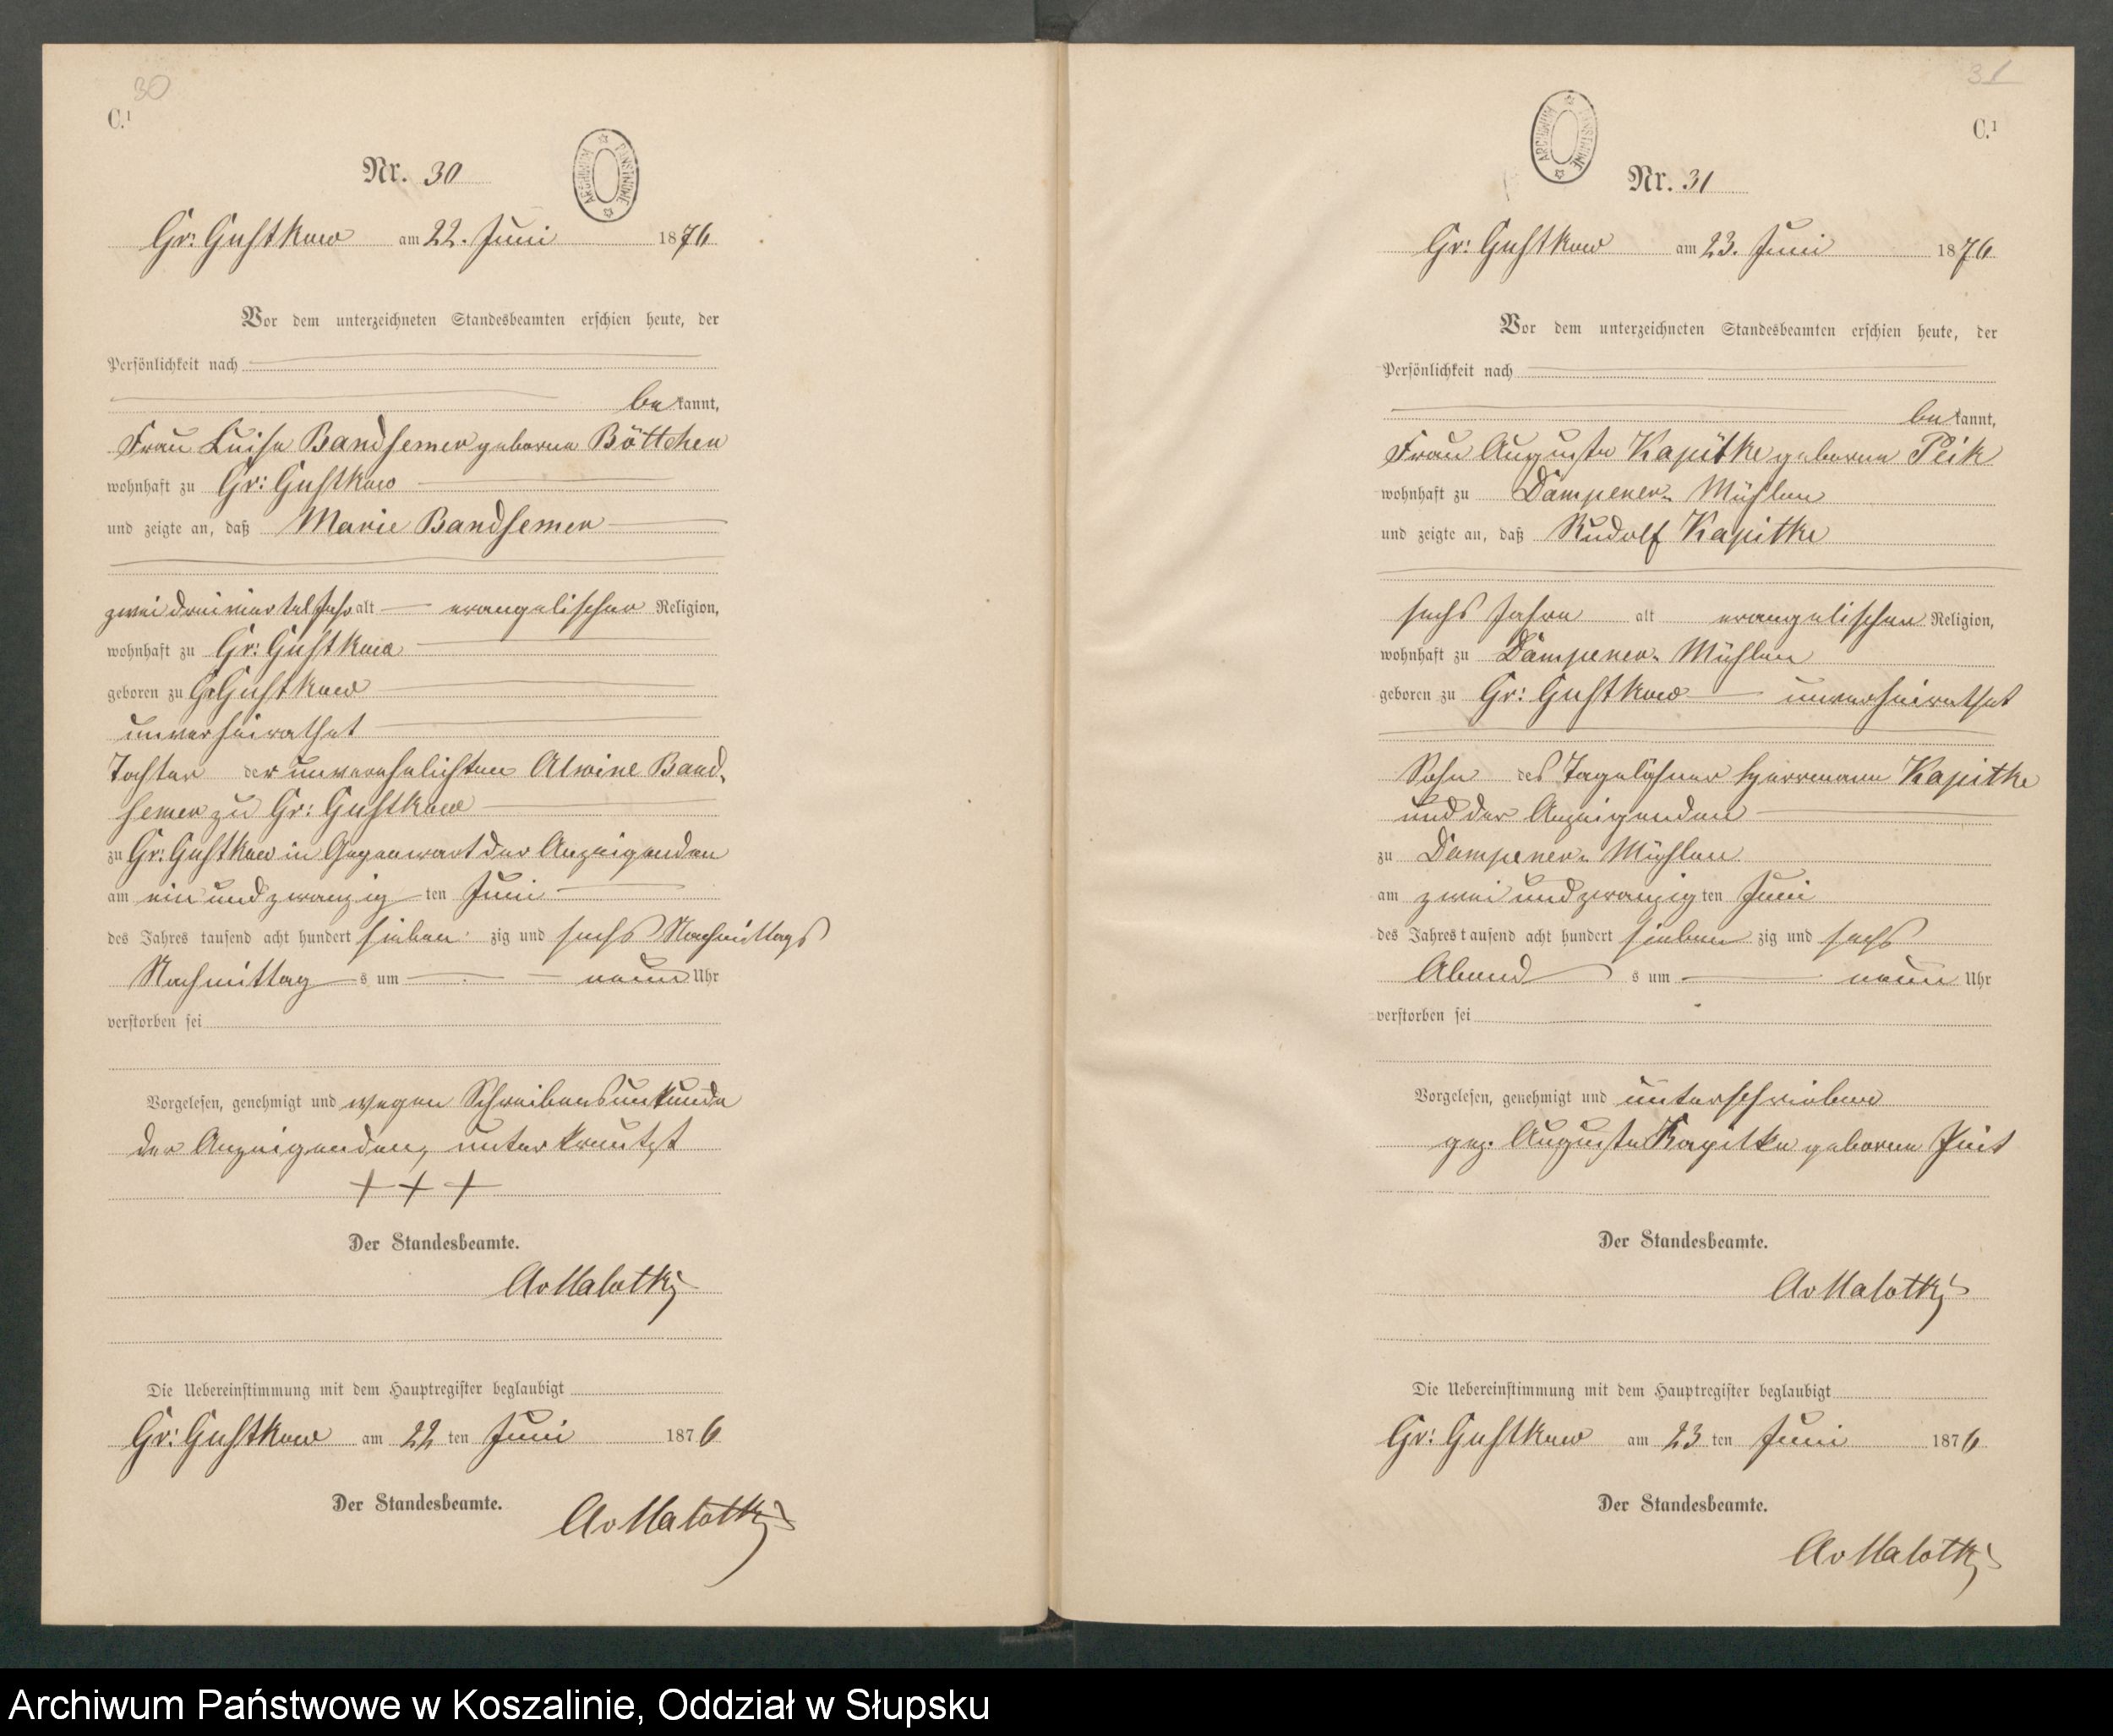 30
C.¹
ARCHIWUM PAŃSTWOWE
Nr. 30
Gr: Gustkow am 22. Juni 1876
Vor dem unterzeichneten Standesbeamten erschien heute, der
Persönlichkeit nach
bekannt,
Frau Luise Bandsemer geborne Böttcher
wohnhaft zu Gr: Gustkow
und zeigte an, daß Marie Bandsemer
zwei dreiviertel Jahr alt evangelischer Religion,
wohnhaft zu Gr: Gustkow
geboren zu Gr Gustkow
unverheirathet
Tochter der unverehelichten Alwine Band-
semer zu Gr: Gustkow
zu Gr: Gustkow in Gegenwart der Anzeigenden
am ein und zwanzig ten Juni
des Jahres tausend acht hundert sieben zig und sechs Nachmittags
Nachmittag s um neun Uhr
verstorben sei
Vorgelesen, genehmigt und wegen Schreibensunkunde
der Anzeigenden, unterkreutzt
+ + +
Der Standesbeamte.
AvMalotki
Die Uebereinstimmung mit dem Hauptregister beglaubigt
Gr: Gustkow am 22 ten Juni 1876
Der Standesbeamte.
AvMalotki
31
C.¹
ARCHIWUM PAŃSTWOWE
Nr. 31
Gr: Gustkow am 23. Juni 1876
Vor dem unterzeichneten Standesbeamten erschien heute, der
Persönlichkeit nach
bekannt,
Frau Auguste Kapitke geborne Peik
wohnhaft zu Dampener- Mühlen
und zeigte an, daß Rudolf Kapitke
sechs Jahre alt evangelischer Religion,
wohnhaft zu Dampener- Mühlen
geboren zu Gr: Gustkow unverheirathet
Sohn des Tagelöhner Herrmann Kapitke
und der Anzeigenden
zu Dampener- Mühlen
am zwei und zwanzig ten Juni
des Jahres tausend acht hundert sieben zig und sechs
Abend s um neun Uhr
verstorben sei
Vorgelesen, genehmigt und unterschrieben
gez. Auguste Kapitke geborne
Der Standesbeamte.
AvMalotki
Die Uebereinstimmung mit dem Hauptregister beglaubigt
Gr: Gustkow am 23 ten Juni 1876
Der Standesbeamte.
AvMalotki
Archiwum Państwowe w Koszalinie, Oddział w Słupsku